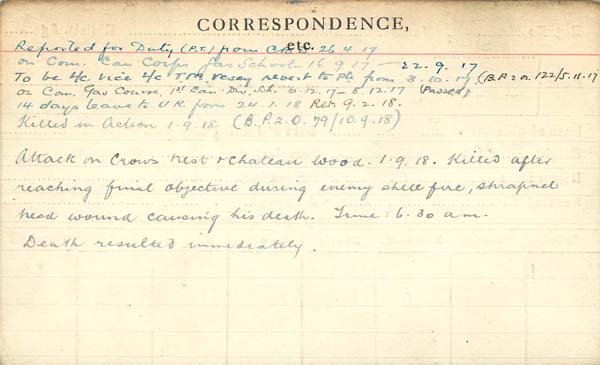 CORRESPONDENCE,
etc.
Reported for Duty (P.T.) from C.B.D. 26 4 17
on Com. Can Corps Gas School - 16 9 17 — 22. 9. 17
To be L/c. vice L/c T.M. Vesey revert to Pte from 3. 10. 17 (B.P.2.O. 122/5.11.17
on Com. Gas Course, 1st Can. Div. Sch. 6.12.17 - 8.12.17 (Passed)
14 days leave to U.K. from 24. 1. 18 Ret. 9. 2. 18.
Killed in Action 1. 9. 18. (B.P.2.O. 79/10.9.18)
Attack on Crows Nest & Chateau Wood. 1. 9. 18. Killed after
reaching final objective during enemy shell fire, shrapnel
head wound causing his death. Time: 6.30 am.
Death resulted immediately.